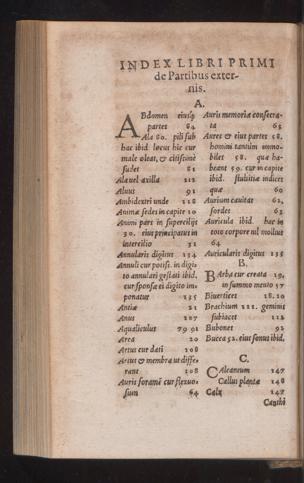 INDEX LIBRI PRIMI
de Partibus exter-
nis.
A.
ABdomen eiusq́
partes 84
Ala 80. pili sub
hac ibid locus hic cur
male oleat, & citissimè
sudet 81
Ala vel axilla 112
Aluus 91
Ambidextri unde 118
Animæ sedes in capite 10
Animi pars in supercilijs
30. eius principatus in
intercilio 31
Annularis digitus 134
Annuli cur potiss. in digi-
to annulari gestati ibid.
cur sponsæ ei digito im-
ponatur 135
Antiæ 21
Anus 107
Aqualiculus 79 91
Area 20
Artus cur dati 108
Artus & membra ut diffe-
rant 108
Auris foramē cur flexuo-
sum 64
Auris memoriæ consecra-
ta 65
Aures & eius partes 58,
homini tantùm immo-
biles 58. quæ ha-
beant 59. cur in capite
ibid. stultitiæ indices
quæ 60
Aurium cauitat 62,
sordes 63
Auricula ibid. hæc in
toto corpore nil mollius
64
Auricularis digitus 135
B.
BArba cur creata 19,
in summo mento 57
Biuertices 18.20
Brachium 111. geminus
subiacet 112
Bubones 92
Bucca 52. eius sonus ibid.
C.
CAlcaneum 147
Callus plantæ 148
Calx 147
Canthi